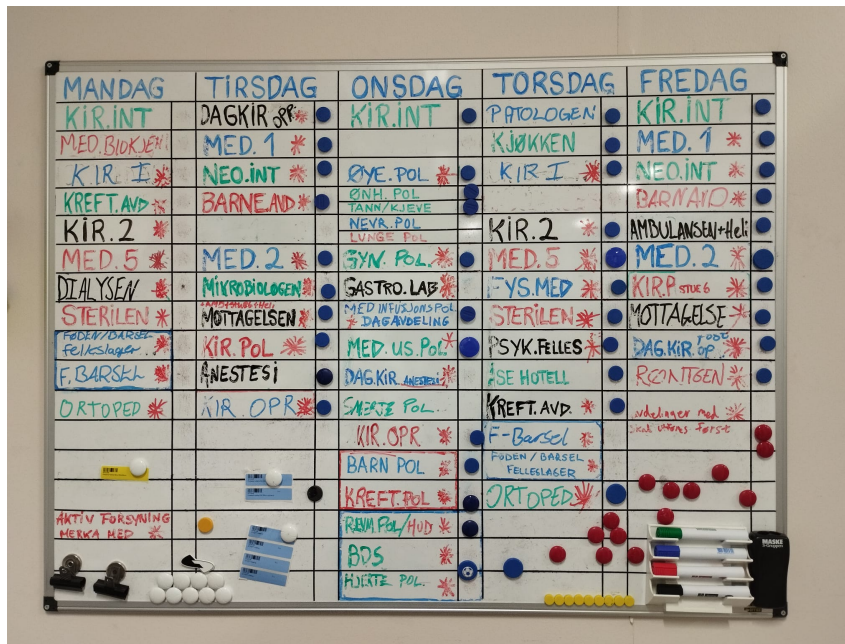 MANDAG
KIR.INT
MED.BIOKJEMI
KIR I
KREFT.AVD
KIR.2
MED.5
DIALYSEN
STERILEN
FØDEN/BARSEL
Felleslager
F.BARSEL
ORTOPED
AKTIV FORSYNING
MERKA MED
TIRSDAG
DAGKIR OPR.
MED.1
NEO.INT
BARNE.AVD
MED.2
MIKROBIOLOGEN
MOTTAGELSEN
KIR.POL
ANESTESI
KIR.OPR
ONSDAG
KIR.INT
ØYE.POL
ØNH.POL
TANN/KJEVE
NEVR.POL
LUNGE POL
GYN.POL.
GASTRO.LAB
MED INFUSJONS POL
DAGAVDELING
MED.US.POL
DAG.KIR ANESTESI
SMERTE POL.
KIR.OPR
BARN POL
KREFT.POL
REVM.POL/HUD
BDS
HJERTE POL.
TORSDAG
PATOLOGEN
KJØKKEN
KIR-I
KIR.2
MED.5
FYS.MED
STERILEN
PSYK.FELLES
ÅSE HOTELL
KREFT.AVD.
F-Barsel
FØDEN/BARSEL
FELLESLAGER
ORTOPED
FREDAG
KIR.INT
MED.1
NEO.INT
BARNAVD
AMBULANSEN+Heli
MED.2
KIR.P STUE 6
MOTTAGELSE
DAG.KIR OP.
RØNTGEN
avdelinger med
skal leveres først
MASKE